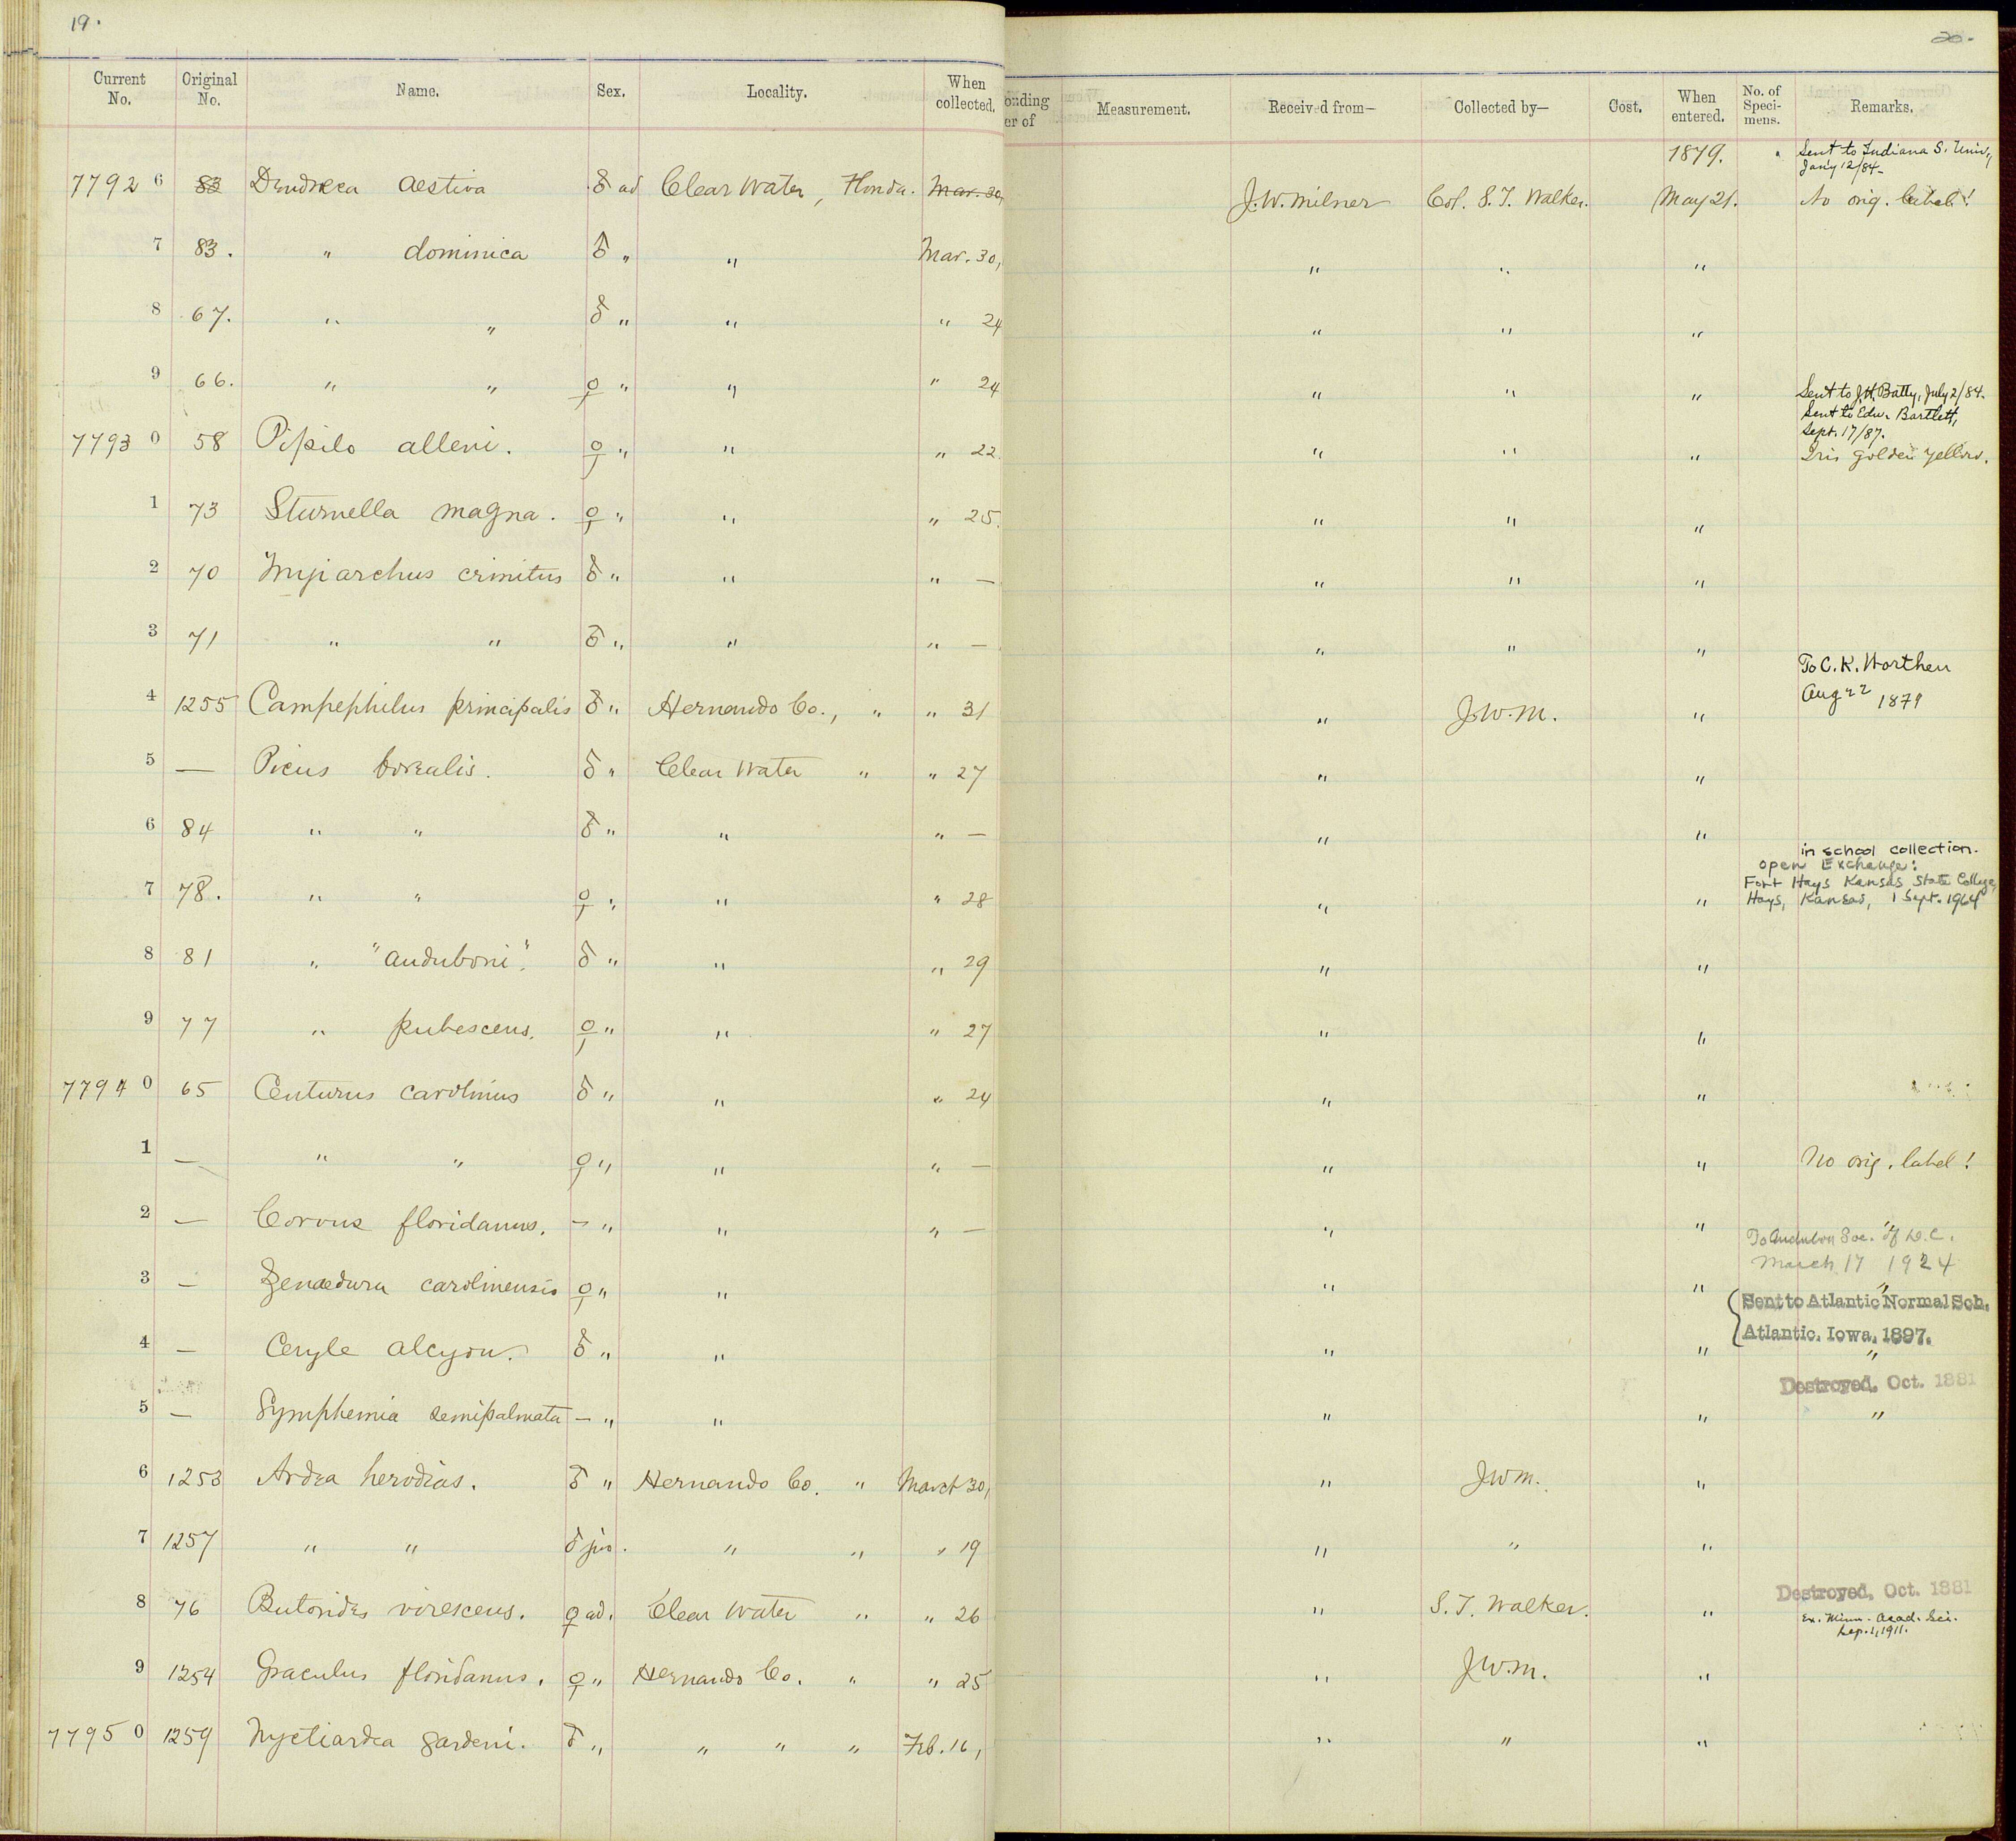 19.
Current No. Original No. Name. Sex. Locality. When collected.
77926 83 Dendroeca aestiva ♂ ad Clear Water, Florida. Mar. 30,
7 83. " dominica ♂ " " Mar. 30,
8 67. " " ♂ " " " 24
9 66. " " ♀ " " " 24
77930 58 Pipilo alleni. ♀ " " " 22.
1 73 Sturnella magna. ♀ " " " 25.
2 70 Myiarchus crinitus ♂ " " " —
3 71 " " ♂ " " " —
4 1255 Campephilus principalis ♂ " Hernando Co., " " 31
5 — Picus borealis. ♂ " Clear Water " " 27
6 84 " " ♂ " " " —
7 78. " " ♀ " " " 28
8 81 " "auduboni". ♂ " " " 29
9 77 " pubescens. ♀ " " " 27
77940 65 Centurus carolinus ♂ " " " 24
1 — " " ♀ " " " —
2 — Corvus floridanus. — " " " —
3 — Zenaedura carolinensis ♀ " "
4 — Ceryle alcyon. ♂ " "
5 — Symphemia semipalmata — " "
6 1253 Ardea herodias. ♂ " Hernando Co. " March 30,
7 1257 " " ♂ juv. " " " 19
8 76 Butorides virescens. ♀ ad. Clear Water " " 26
9 1254 Graculus floridanus. ♀ " Hernando Co. " " 25
77950 1259 Nyctiardea gardeni. ♂ " " " " Feb. 16,
20.
onding er of Measurement. Received from— Collected by— Cost. When entered. No. of Specimens. Remarks.
1879. Sent to Indiana S. Univ,
Jan'y 12/84-
J.W. Milner Col. S.T. Walker. May 21. No orig. label!
" " "
" " "
" " " Sent to J.H. Batty, July 2/84.
Sent to Edw. Bartlett,
Sept. 17/87.
" " " Iris golden yellow.
" " "
" " "
" " "
To C.K. Worthen
Aug 22 1879
" J.W.M. "
" "
" "
in school collection.
open Exchange:
Fort Hays Kansas State College,
" " Hays, Kansas, 1 Sept. 1964
" "
" "
" "
" " No orig. label!
" " "
To Audubon Soc. of D.C.
March 17 1924
" " "
Sent to Atlantic Normal Sch.
Atlantic, Iowa, 1897.
" " "
Destroyed, Oct. 1881
" " "
" JWM. "
" " "
Destroyed, Oct. 1881
" S.T. Walker. "
Ex. Minn. Acad. Sci.
Sep. 1, 1911.
" J.W.M. "
" " "